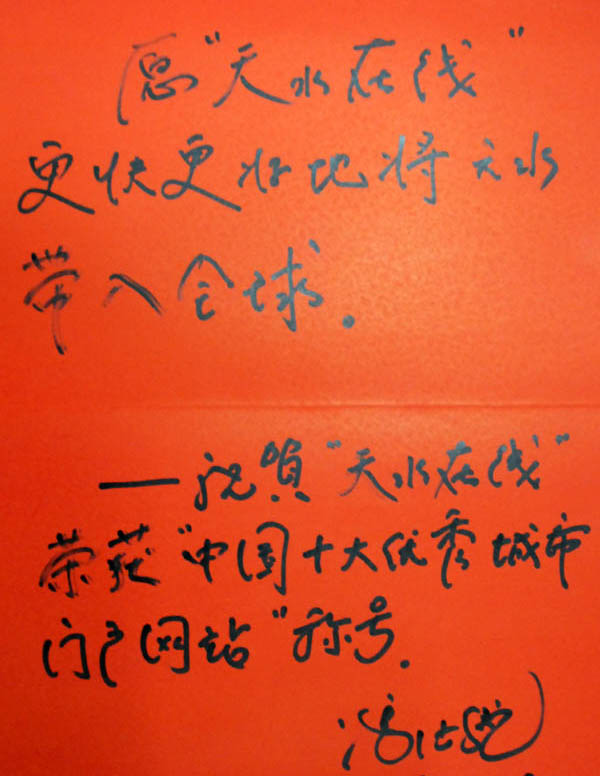 愿"天水在线"
更快更好地将天水
带入全球.
——祝贺"天水在线"
荣获"中国十大优秀城市
门户网站"称号.